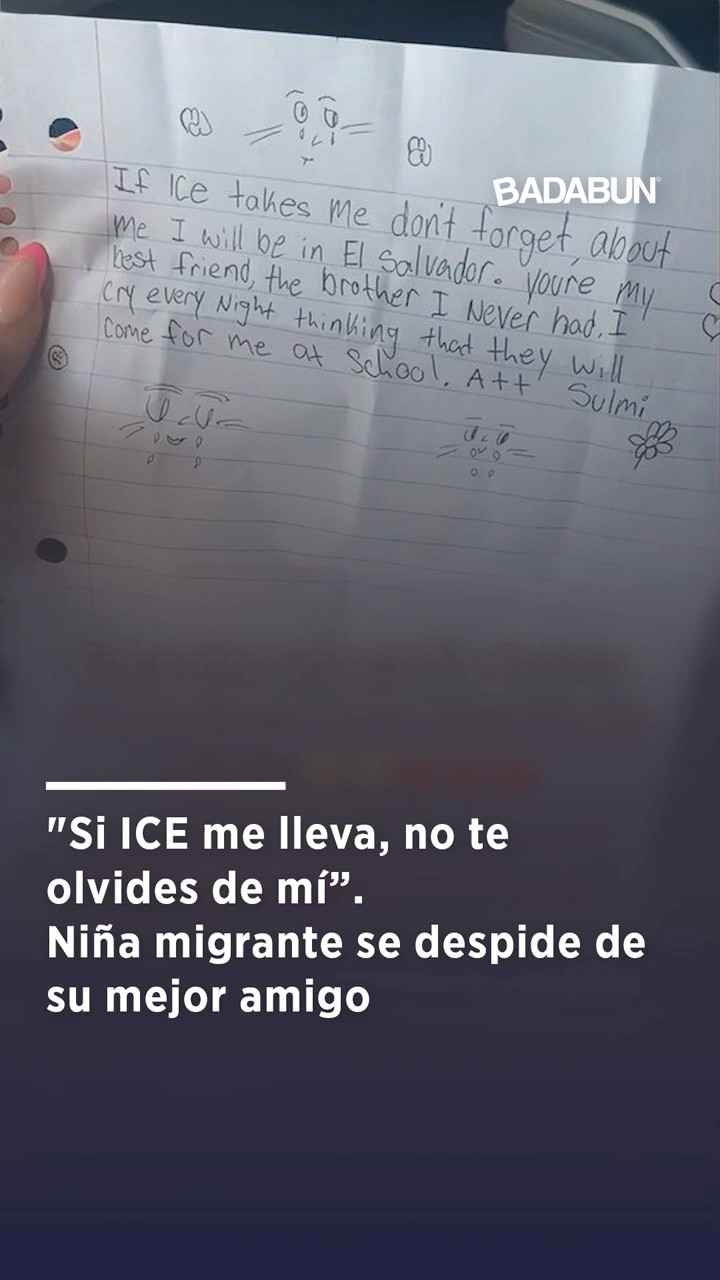 BADABUN
If ICe takes me don't forget about
me I will be in El Salvador. youre my
best friend, the brother I Never had. I
cry every Night thinking that they will
come for me at School. A++ Sulmi
"Si ICE me lleva, no te
olvides de mí”.
Niña migrante se despide de
su mejor amigo